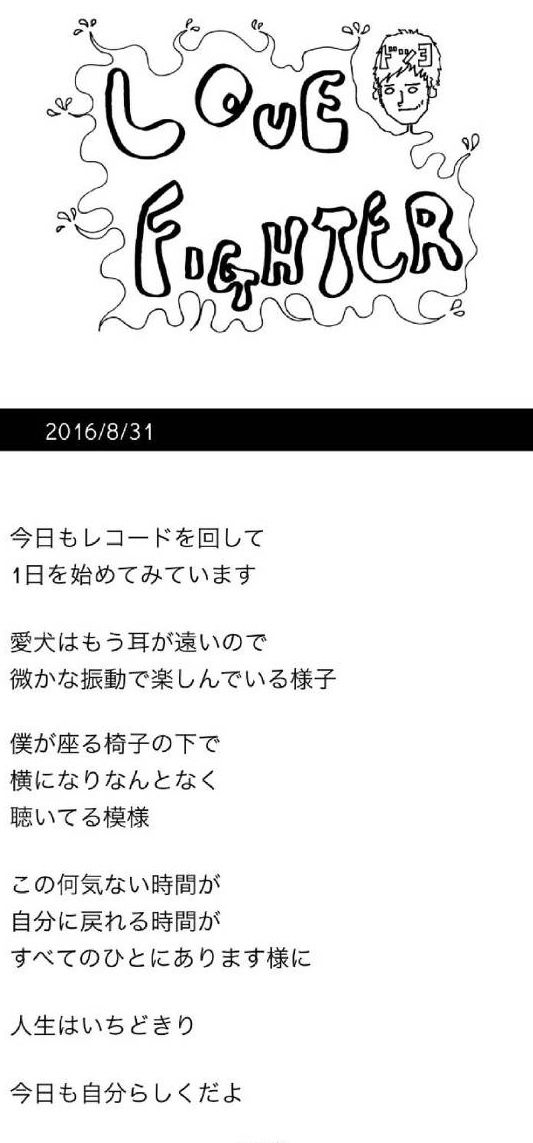 LOVE
FIGHTER
2016/8/31
今日もレコードを回して
1日を始めてみています
愛犬はもう耳が遠いので
微かな振動で楽しんでいる様子
僕が座る椅子の下で
横になりなんとなく
聴いてる模様
この何気ない時間が
自分に戻れる時間が
すべてのひとにあります様に
人生はいちどきり
今日も自分らしくだよ